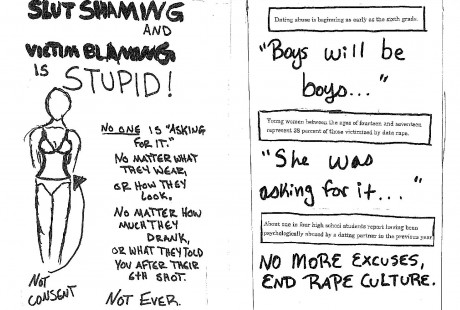 SLUT SHAMING
AND
VICTIM BLAMING
IS STUPID!
NO ONE IS "ASKING
FOR IT."
NO MATTER WHAT
THEY WEAR,
OR HOW THEY
LOOK.
NO MATTER HOW
MUCH THEY
DRANK,
OR WHAT THEY TOLD
YOU AFTER THEIR
6TH SHOT.
NOT EVER.
NOT
CONSENT
Dating abuse is beginning as early as the sixth grade.
"Boys will be
boys..."
Young women between the ages of fourteen and seventeen
represent 38 percent of those victimized by date rape.
"She was
asking for it..."
About one in four high school students report having been
psychologically abused by a dating partner in the previous year
NO MORE EXCUSES,
END RAPE CULTURE.